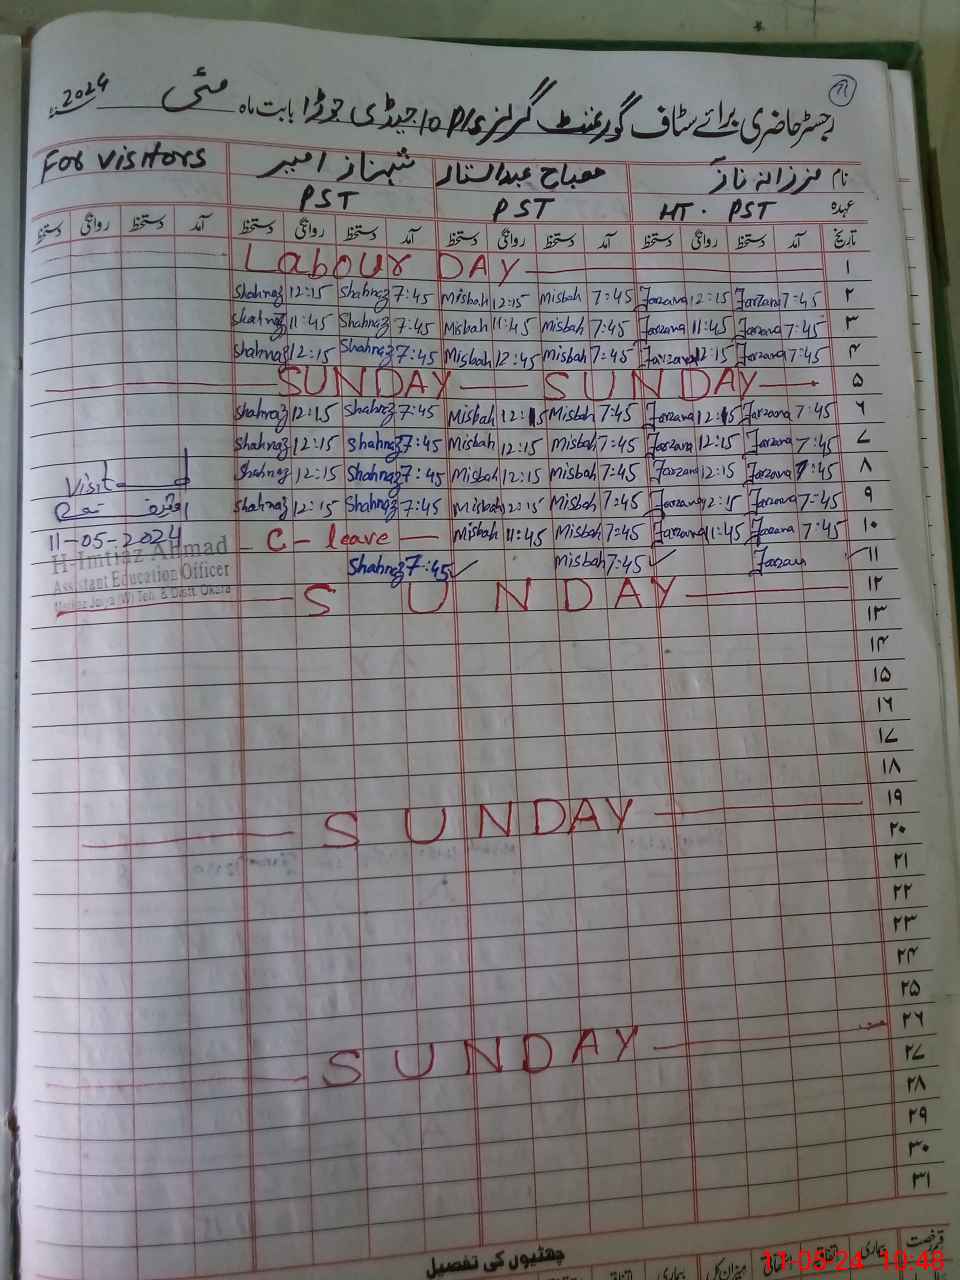 رجسٹر حاضری برائے سٹاف گورنمنٹ گرلز P/S 10 جیڈی بابت ماہ مئی 2024
نام فرزانہ ناز مصباح عبدالستار شہناز For visitors
عہدہ HT. PST PST PST
تاریخ آمد دستخط روانگی دستخط آمد دستخط روانگی دستخط آمد دستخط روانگی دستخط آمد دستخط روانگی دستخط
۱ Labour DAY
۲ 7:45 Farzana 12:15 Farzana 7:45 Misbah 12:15 Misbah 7:45 Shahnaz 12:15 Shahnaz
۳ 7:45 Farzana 11:45 Farzana 7:45 Misbah 11:45 Misbah 7:45 Shahnaz 11:45 Shahnaz
۴ 7:45 Farzana 12:15 Farzana 7:45 Misbah 12:45 Misbah 7:45 Shahnaz 12:15 Shahnaz
۵ SUNDAY SUNDAY
۶ 7:45 Farzana 12:15 Farzana 7:45 Misbah 12:15 Misbah 7:45 Shahnaz 12:15 Shahnaz
۷ 7:45 Farzana 12:15 Farzana 7:45 Misbah 12:15 Misbah 7:45 Shahnaz 12:15 Shahnaz
۸ 7:45 Farzana 12:15 Farzana 7:45 Misbah 12:15 Misbah 7:45 Shahnaz 12:15 Shahnaz
Visit
۹ 7:45 Farzana 12:15 Farzana 7:45 Misbah 12:15 Misbah 7:45 Shahnaz 12:15 Shahnaz
۱۰ 7:45 Farzana 11:45 Farzana 7:45 Misbah 11:45 Misbah C - leave
11-05-2024
H-Imtiaz Ahmad
Assistant Education Officer
(W) Teh. & Distt. Okara
۱۱ Farzana 7:45 Misbah 7:45 Shahnaz
۱۲ SUNDAY
۱۳
۱۴
۱۵
۱۶
۱۷
۱۸
۱۹ SUNDAY
۲۰
۲۱
۲۲
۲۳
۲۴
۲۵
۲۶ SUNDAY
۲۷
۲۸
۲۹
۳۰
۳۱
چھٹیوں کی تفصیل
بیماری
11-05-24 10:48